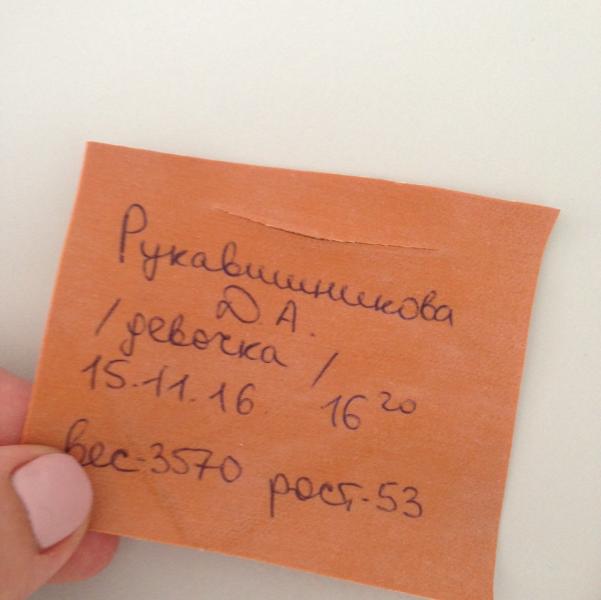 Рукавишникова
Д.А.
/девочка/
15.11.16 16²⁰
вес-3570 рост-53